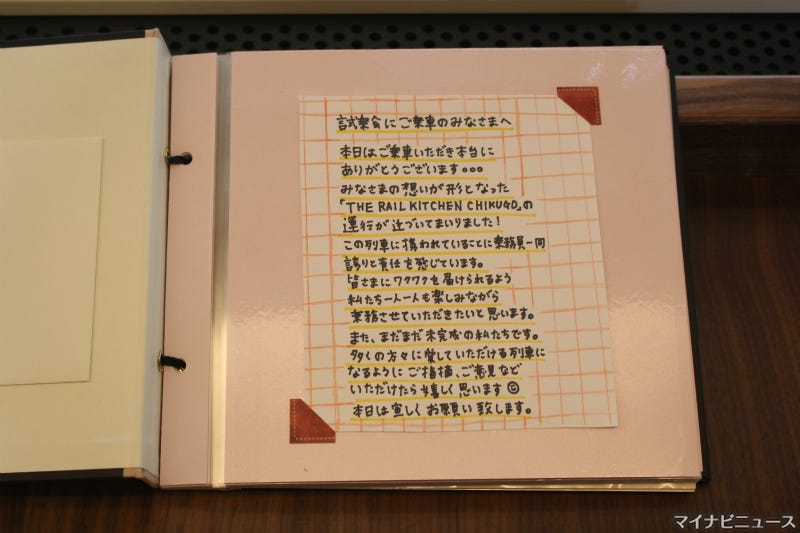 試乗会にご乗車のみなさまへ
本日はご乗車いただき本当に
ありがとうございます。。。
みなさまの想いが形となった
「THE RAIL KITCHEN CHIKUGO」の
運行が近づいてまいりました！
この列車に携われていることに乗務員一同
誇りと責任を感じています。
皆さまにワクワクを届けられるよう
私たち一人一人も楽しみながら
乗務させていただきたいと思います。
また、まだまだ未完成の私たちです。
多くの方々に愛していただける列車に
なるようにご指摘、ご意見など
いただけたら嬉しく思います☺
本日は宜しくお願い致します。
マイナビニュース